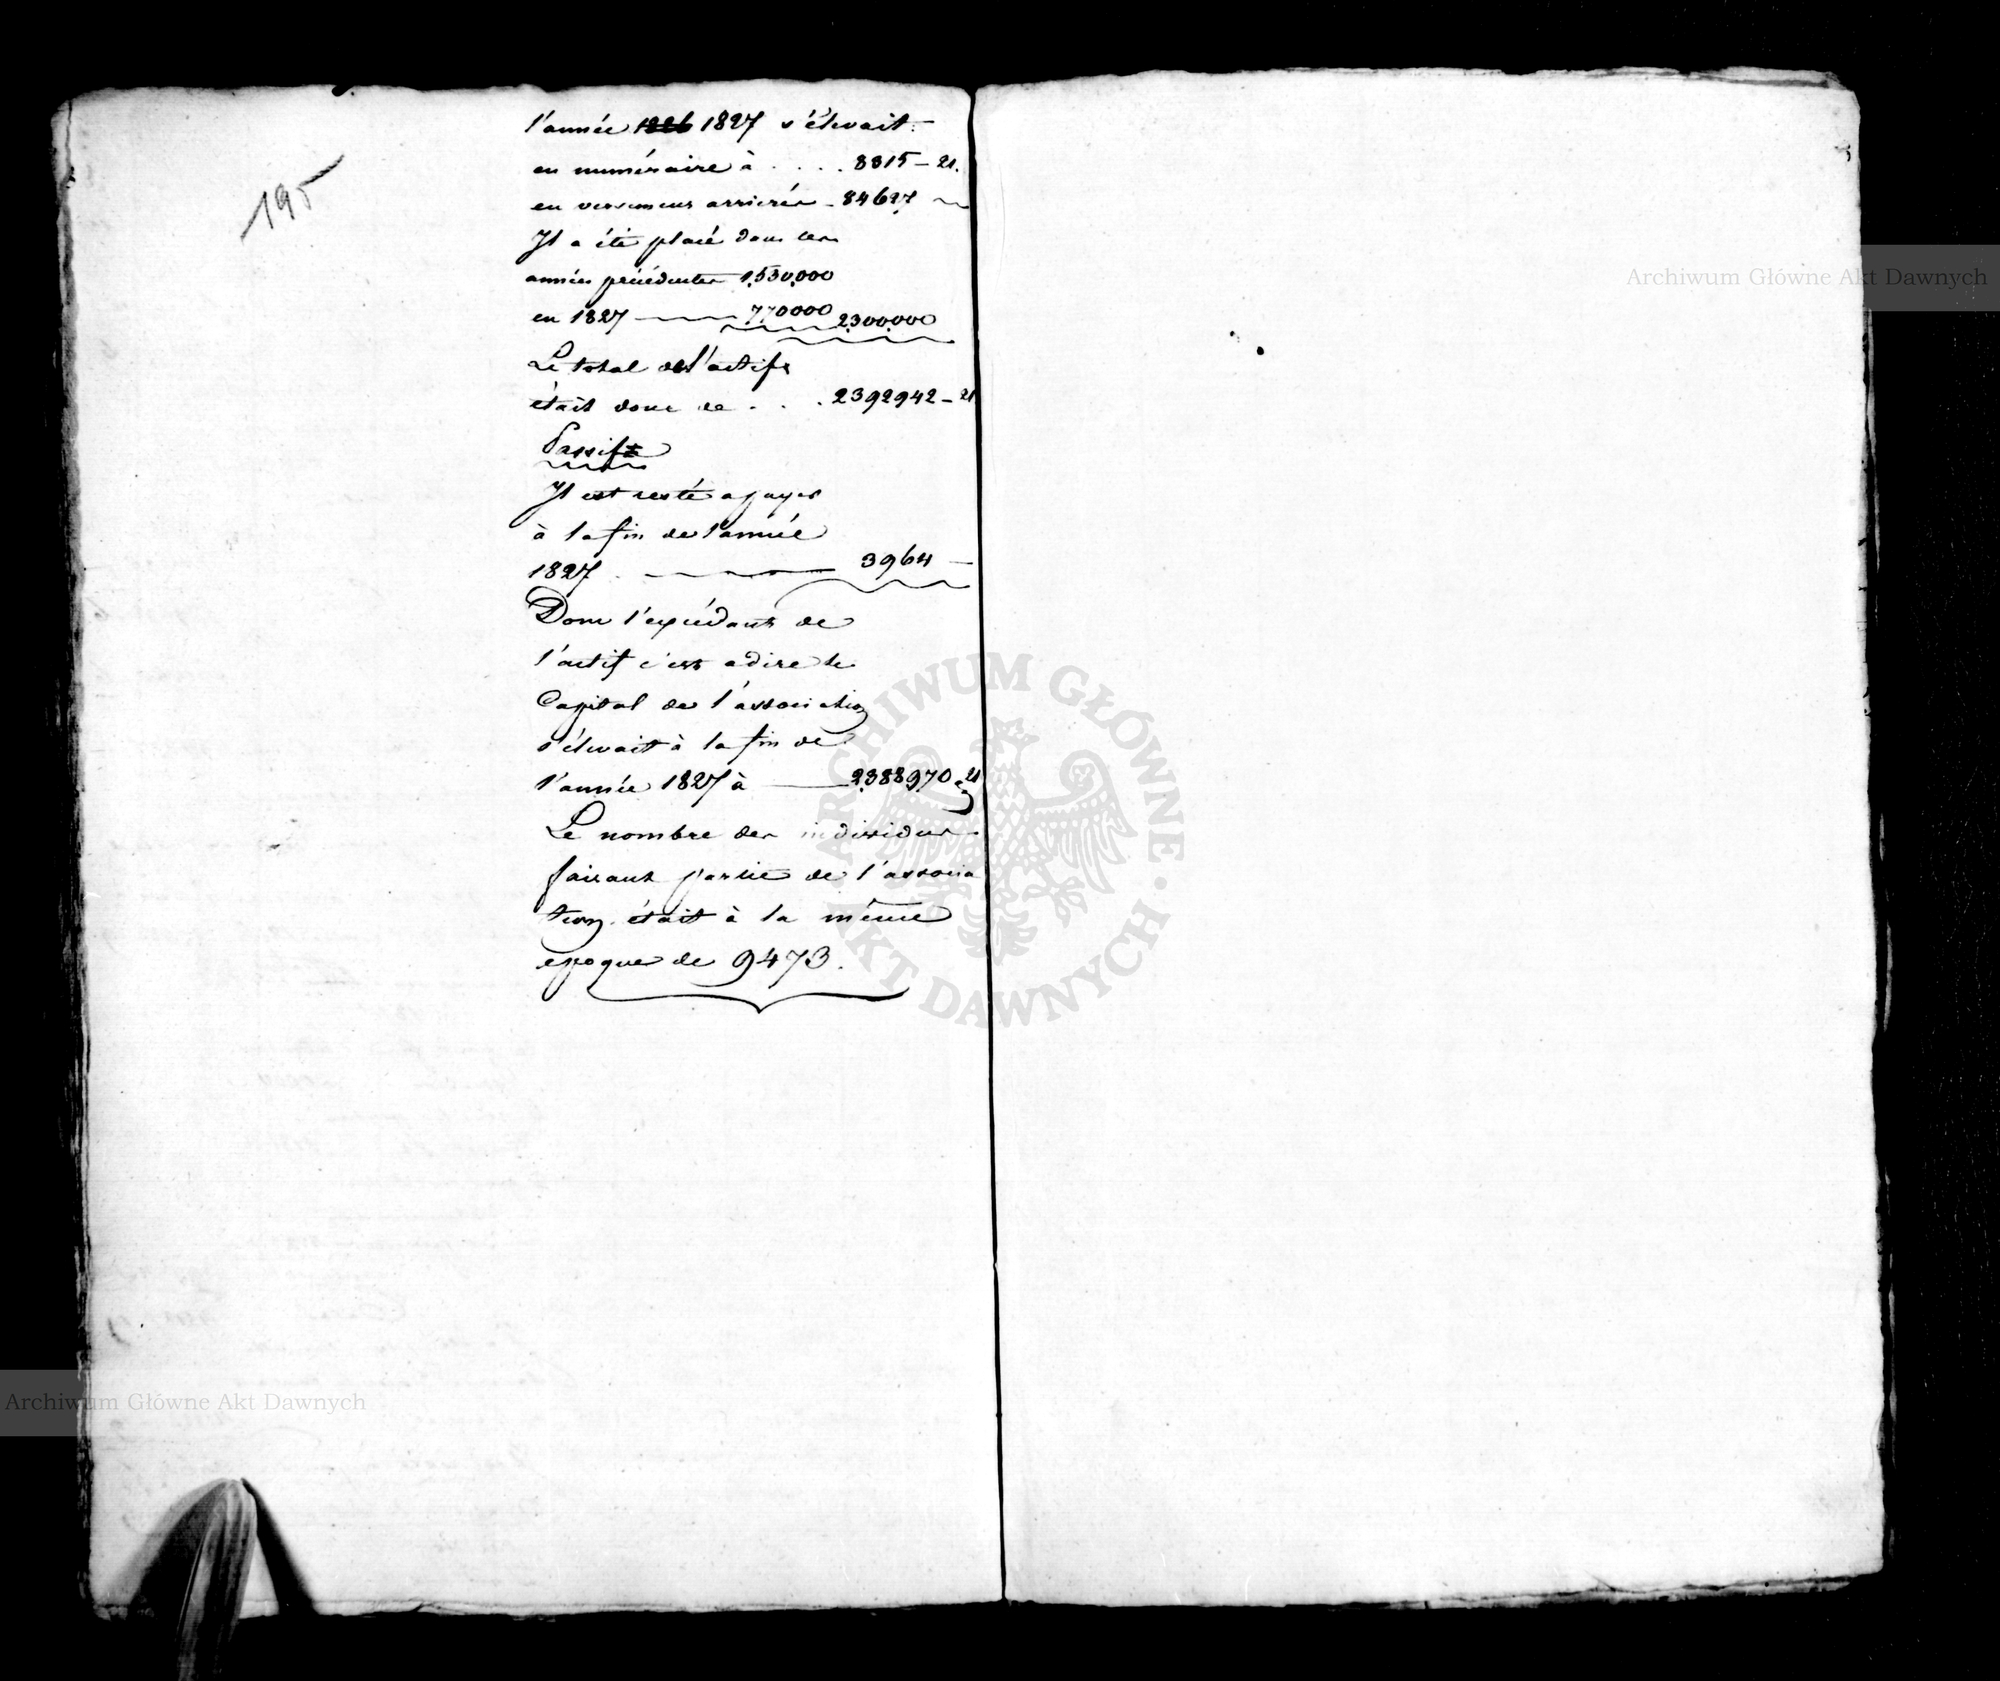 195
l'année ~~1826~~ 1827 s'élevait:
en numéraire à . . . . 8315 – 21.
en versemens arriérés – 84627 ~
Il a été placé dans les
années précédentes 1,530,000
en 1827 —— 770000 2,300,000
Le total de l'actif
était donc de . . . 2392942 – 21
Passif
Il est resté a payer
à la fin de l'année
1827 . —— 3964 —
Donc l'excédant de
l'actif c'est a dire le
Capital de l'association
s'élevait à la fin de
l'année 1827 à —— 2,388,970 – 21
Le nombre des individus
faisant partie de l'associa
tion était à la même
epoque de 9473.
Archiwum Główne Akt Dawnych
ARCHIWUM GŁÓWNE · AKT DAWNYCH ·
Archiwum Główne Akt Dawnych